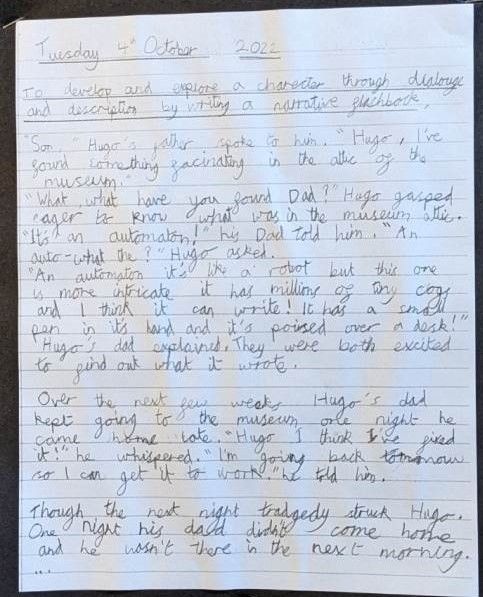 Tuesday 4th October 2022
To develop and explore a character through dialouge
and description by writing a narrative flachback.
"Son," Hugo's father spoke to him. "Hugo, I've
found something facinating in the attic of the
museum."
"What, what have you found Dad?" Hugo gasped
eager to know what was in the museum attic.
"It's an automaton!" his Dad told him. "An
auto-what the?" Hugo asked.
"An automaton it's like a robot but this one
is more intricate it has millions of tiny cogs
and I think it can write! It has a small
pen in it's hand and it's poised over a desk!"
Hugo's dad explained. They were both excited
to find out what it wrote.
Over the next few weeks Hugo's dad
kept going to the museum one night he
came home late. "Hugo I think I've fixed
it!" he whispered. "I'm going back tomorrow
so I can get it to work." he told him.
Though the next night tradgedy struck Hugo.
One night his dad didn't come home
and he wasn't there in the next morning.
...